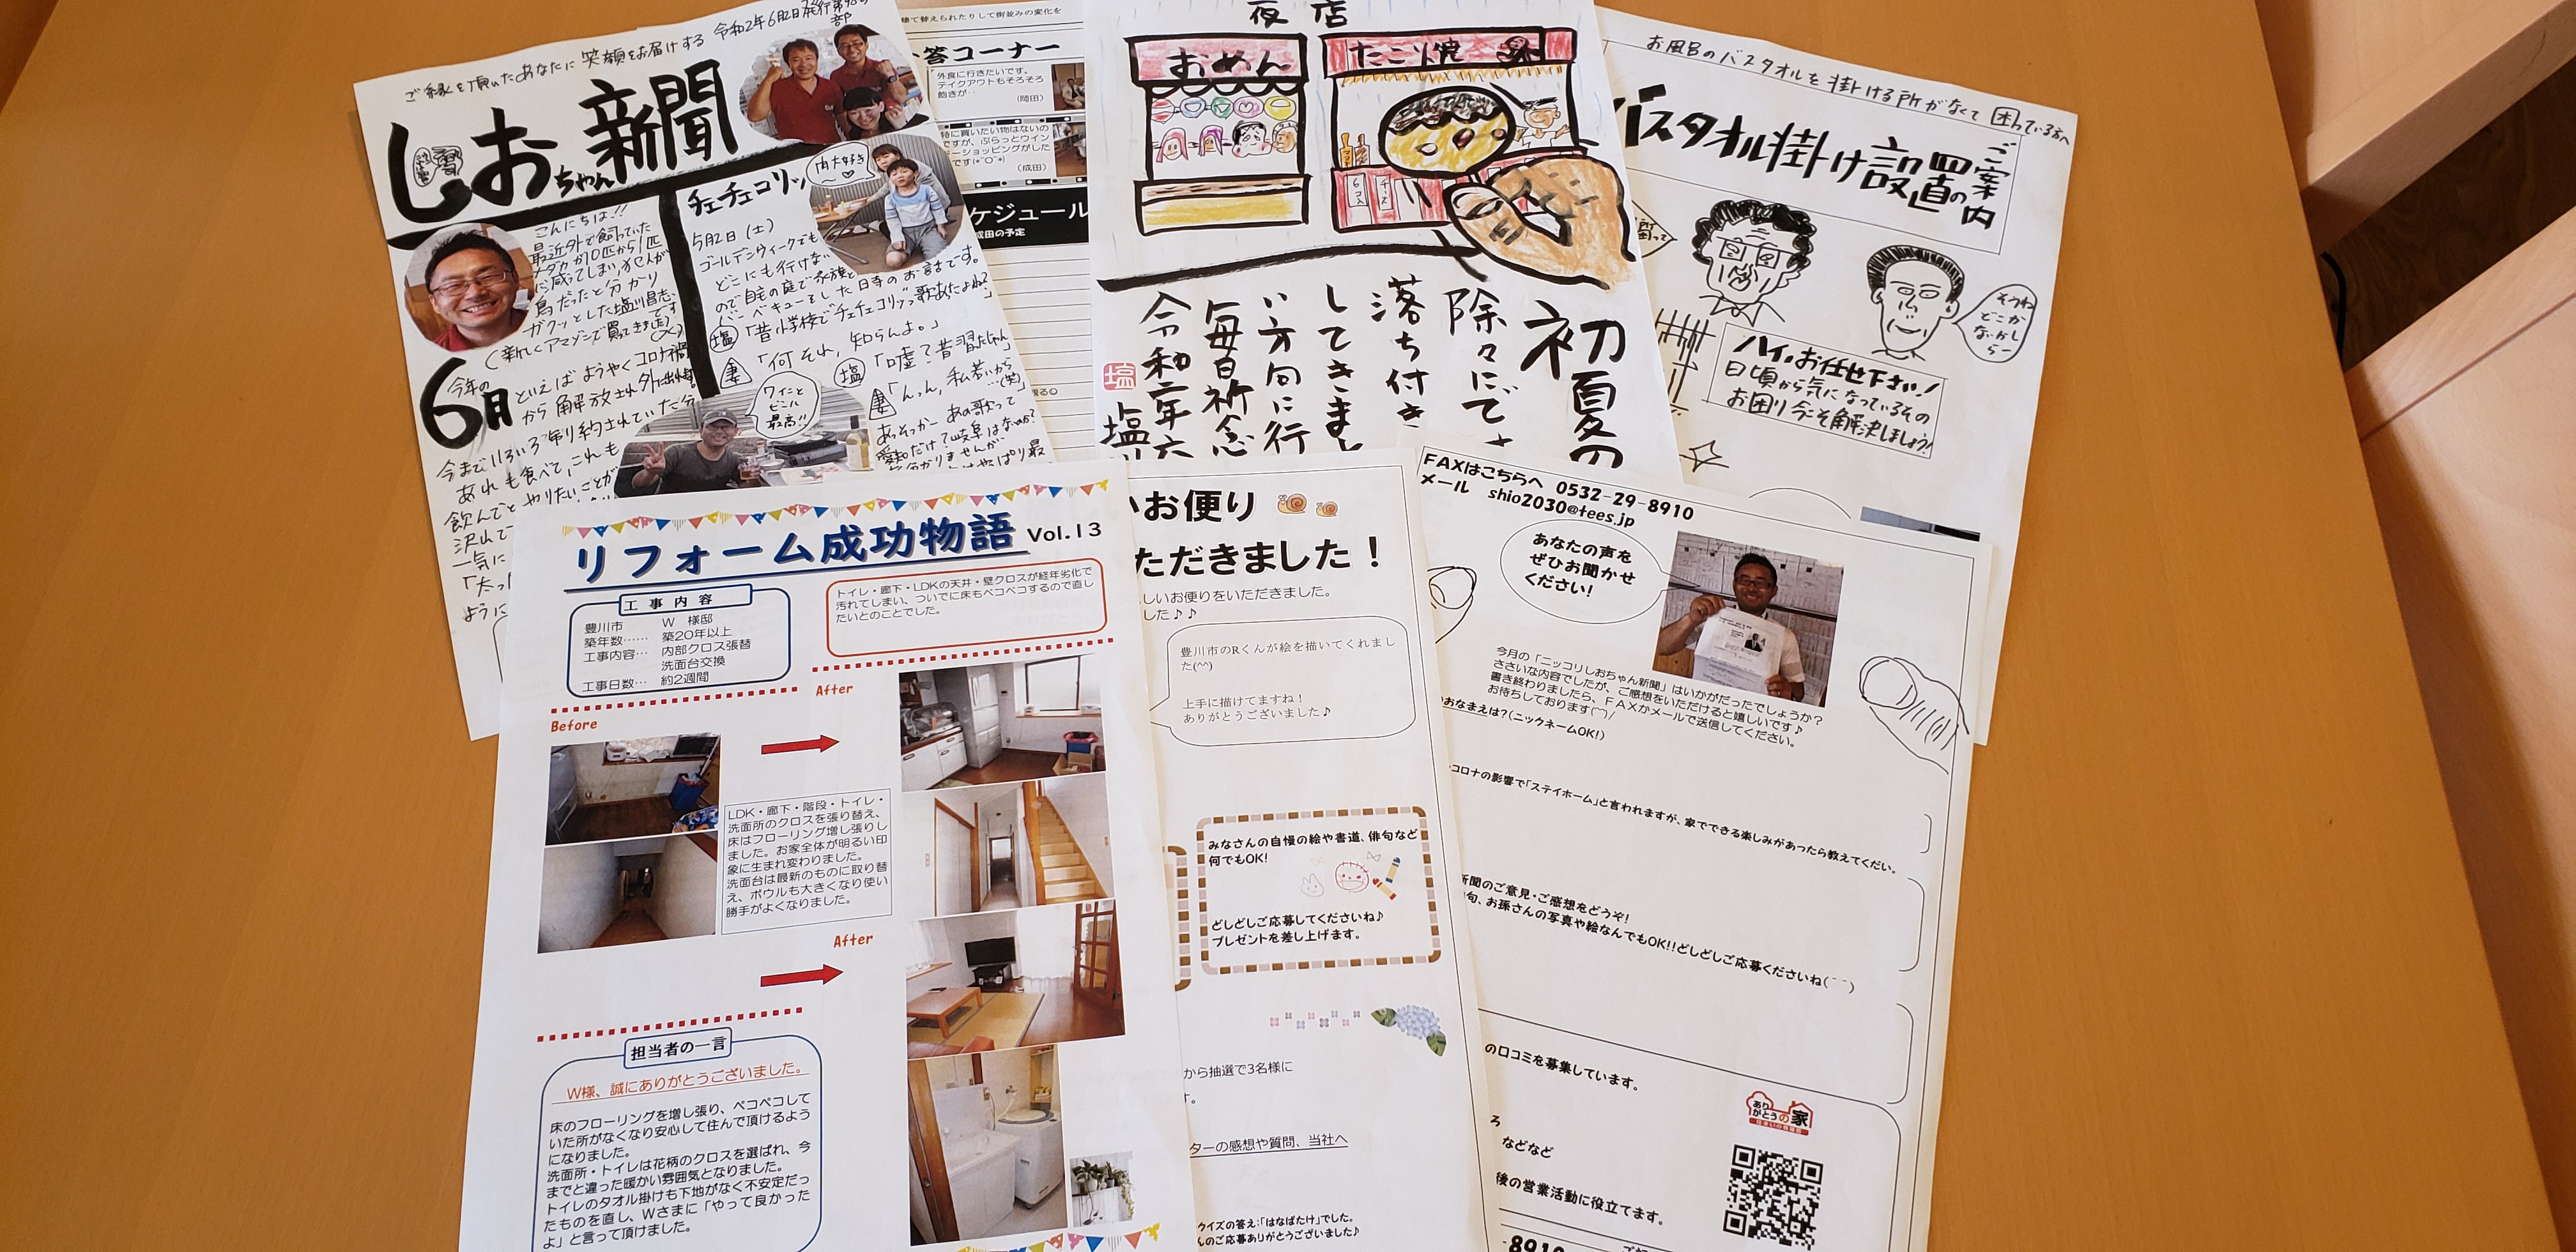 ご縁を頂いたあなたに笑顔をお届けする 令和2年6月2日発行
しおちゃん新聞
こんにちは!!
最近外で飼っていた
メダカが10匹から1匹
に減ってしまい、犯人が
鳥だったと分かり
ガクッとした塩川昌志
です
(新しくアマゾンで買ってきます(笑))
今年の
6月といえばようやくコロナ禍
から解放され外に出れます
今まで いろいろ制約されていた分
あれも食べて、これも
飲んでと やりたいことが
沢山で
一気に
「太っ
ように
チェチェコリッ
肉大好き
~♡
5月2日(土)
ゴールデンウィークでも
どこにも行けない
ので自宅の庭で家族と
バーベキューをした日寺のお話です。
塩「昔小学校でチェチェコリッって歌あたよね?」
妻「何それ、知らんよ。」
塩「嘘?昔習たじゃん」
妻「んっん、私若いから
…(笑)
ワインと
ビール
最高!!
あっそっかー あの歌って
愛知だけ?岐阜はないのか?
分かりませんが
やっぱり最
建て替えられたりして街並みの変化を
答コーナー
外食に行きたいです。
テイクアウトもそろそろ
飽きが…
(岡田)
特に買いたい物はないの
ですが、ぶらっとウイン
ドーショッピングがした
いです(*^O^*)
(成田)
ケジュール
成田の予定
夜店
おめん
たこり焼
6コ入
チーズ
初夏の
除々にで
落ち付き
してきまし
い方向に行
毎日祈念
令和二年六
塩
お風呂のバスタオルを掛ける所がなくて 困っている方へ
バスタオル掛け設置のご案内
そうね
どこか
ないかし
らー
ハイ、お任せ下さい!
日頃から気になっているその
お困り今こそ解決しましょう!
リフォーム成功物語 Vol.13
工事内容
豊川市 W 様邸
築年数…… 築20年以上
工事内容… 内部クロス張替
洗面台交換
工事日数… 約2週間
トイレ・廊下・LDKの天井・壁クロスが経年劣化で
汚れてしまい、ついでに床もペコペコするので直し
たいとのことでした。
Before
After
LDK・廊下・階段・トイレ・
洗面所のクロスを張り替え、
床はフローリング増し張りし
ました。お家全体が明るい印
象に生まれ変わりました。
洗面台は最新のものに取り替
え、ボウルも大きくなり使い
勝手がよくなりました。
After
担当者の一言
W様、誠にありがとうございました。
床のフローリングを増し張り、ペコペコして
いた所がなくなり安心して住んで頂けるよう
になりました。
洗面所・トイレは花柄のクロスを選ばれ、今
までと違った暖かい雰囲気となりました。
トイレのタオル掛けも下地がなく不安定だっ
たものを直し、Wさまに「やって良かった
よ」と言って頂けました。
いお便り
ただきました！
しいお便りをいただきました。
した♪♪
豊川市のRくんが絵を描いてくれまし
た(^^)
上手に描けてますね！
ありがとうございました♪
みなさんの自慢の絵や書道、俳句など
何でもOK!
どしどしご応募してくださいね♪
プレゼントを差し上げます。
から抽選で3名様に
す。
ターの感想や質問、当社へ
クイズの答え:「はなばたけ」でした。
んのご応募ありがとうございました♪
FAXはこちらへ 0532-29-8910
メール shio2030@tees.jp
あなたの声を
ぜひお聞かせ
ください!
今月の「ニッコリしおちゃん新聞」はいかがだったでしょうか？
ささいな内容でしたが、ご感想をいただけると嬉しいです♪
書き終わりましたら、FAXかメールで送信してください。
お待ちしております(^^)/
おなまえは?(ニックネームOK!)
コロナの影響で「ステイホーム」と言われますが、家でできる楽しみがあったら教えてください。
新聞のご意見・ご感想をどうぞ!
句、お孫さんの写真や絵なんでもOK!!どしどしご応募くださいね(^^)
の口コミを募集しています。
ろ
などなど
後の営業活動に役立てます。
ありがとうの家
-8910